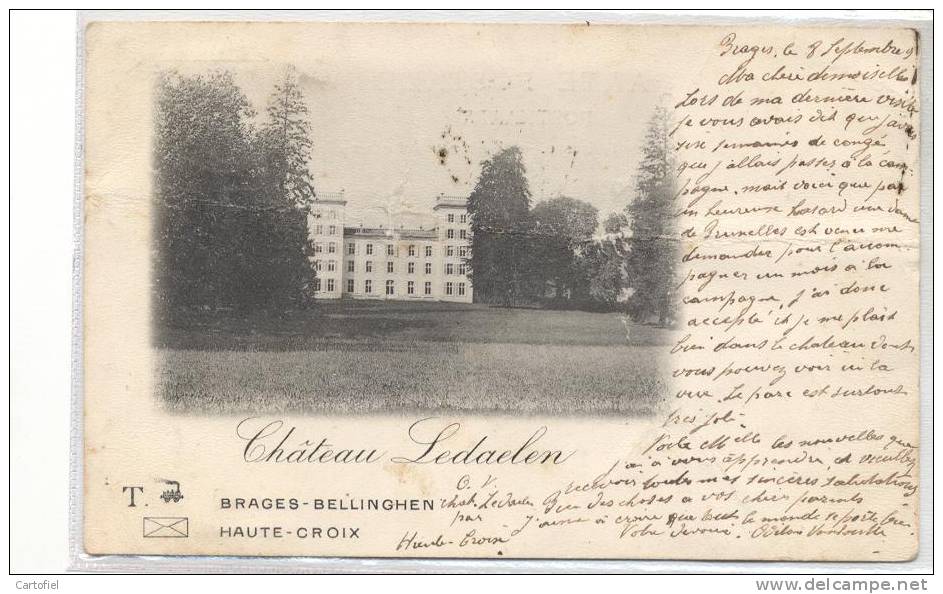 Brages, le 8 Septembre
Ma chère demoiselle
Lors de ma dernière visite
je vous avais dit que j'avais
six semaines de congé
que j'allais passer à la cam-
pagne, mais voici que par
un heureux hasard une dame
de Bruxelles est venu me
demander pour l'accom-
pagner un mois à la
campagne, j'ai donc
accepté et je me plais
bien dans le chateau dont
vous pouvez voir ici la
vue. Le parc est surtout
très joli.
Voilà Melle les nouvelles que
j'ai à vous apprendre, et veuillez
recevoir toutes mes sincères salutations
Bien des choses à vos chers parents
J'aime à croire que tout le monde se porte bien
Votre dévouée.
Château Ledaelen
T.
BRAGES-BELLINGHEN
HAUTE-CROIX
O. V.
chât. Ledaelen
par
Haute-Croix
Cartofiel
http://www.delcampe.net